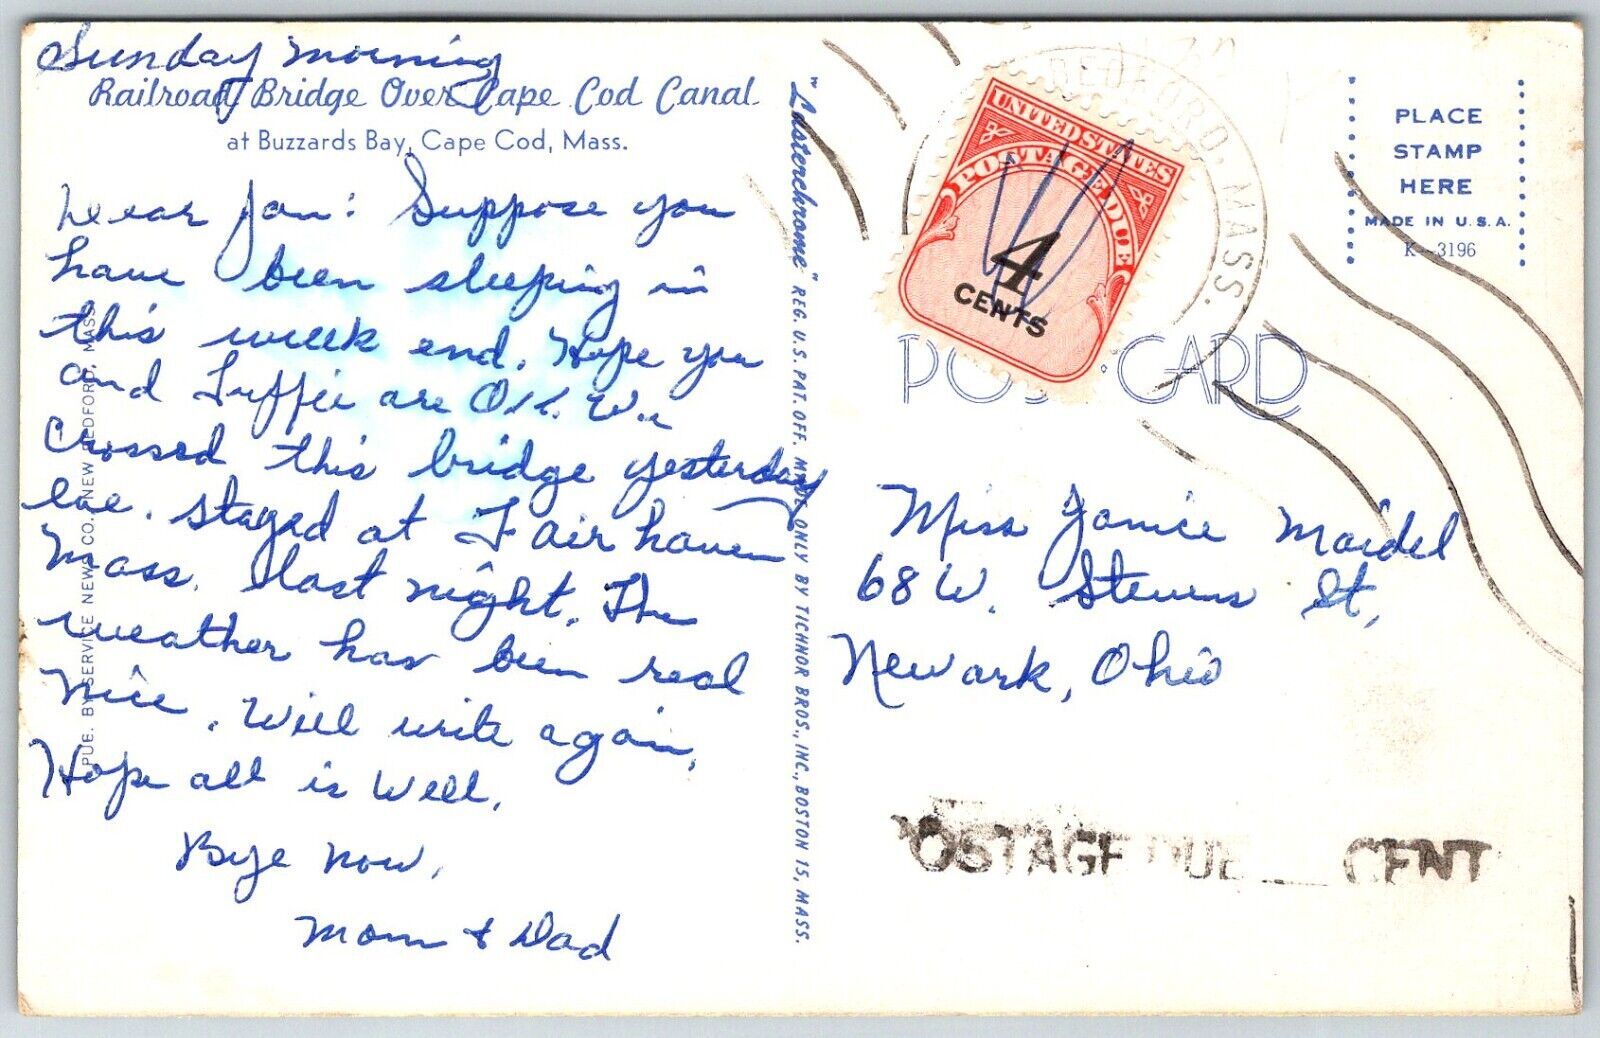 Sunday morning
Railroad Bridge Over Cape Cod Canal
at Buzzards Bay, Cape Cod, Mass.
Dear Jan: Suppose you
have been sleeping in
this week end. Hope you
and Tuffie are O.K. We
crossed this bridge yesterday
eve. stayed at Fairhaven
Mass. last night. The
weather has been real
nice. Will write again.
Hope all is well.
Bye now.
Mom & Dad
PUB. BY SERVICE NEWS CO. NEW BEDFORD, MASS.
"Lusterchrome" REG. U.S. PAT. OFF. MADE ONLY BY TICHNOR BROS., INC., BOSTON 15, MASS.
BEDFORD, MASS.
UNITED STATES
POSTAGE DUE
4
CENTS
PLACE
STAMP
HERE
MADE IN U.S.A.
K-3196
POST CARD
Miss Janice Maidel
68 W. Stevens St,
Newark, Ohio
POSTAGE DUE __ CENT